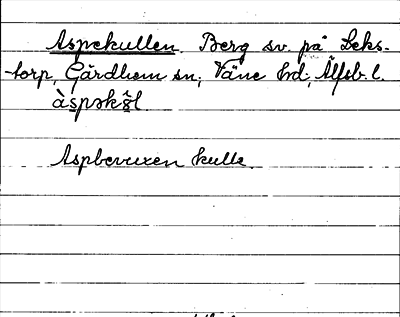 Aspekullen. Berg sv. på Leks-
torp, Gärdhem sn; Väne hd; Älfsb. l.
àspək
Aspbevuxen kulle.